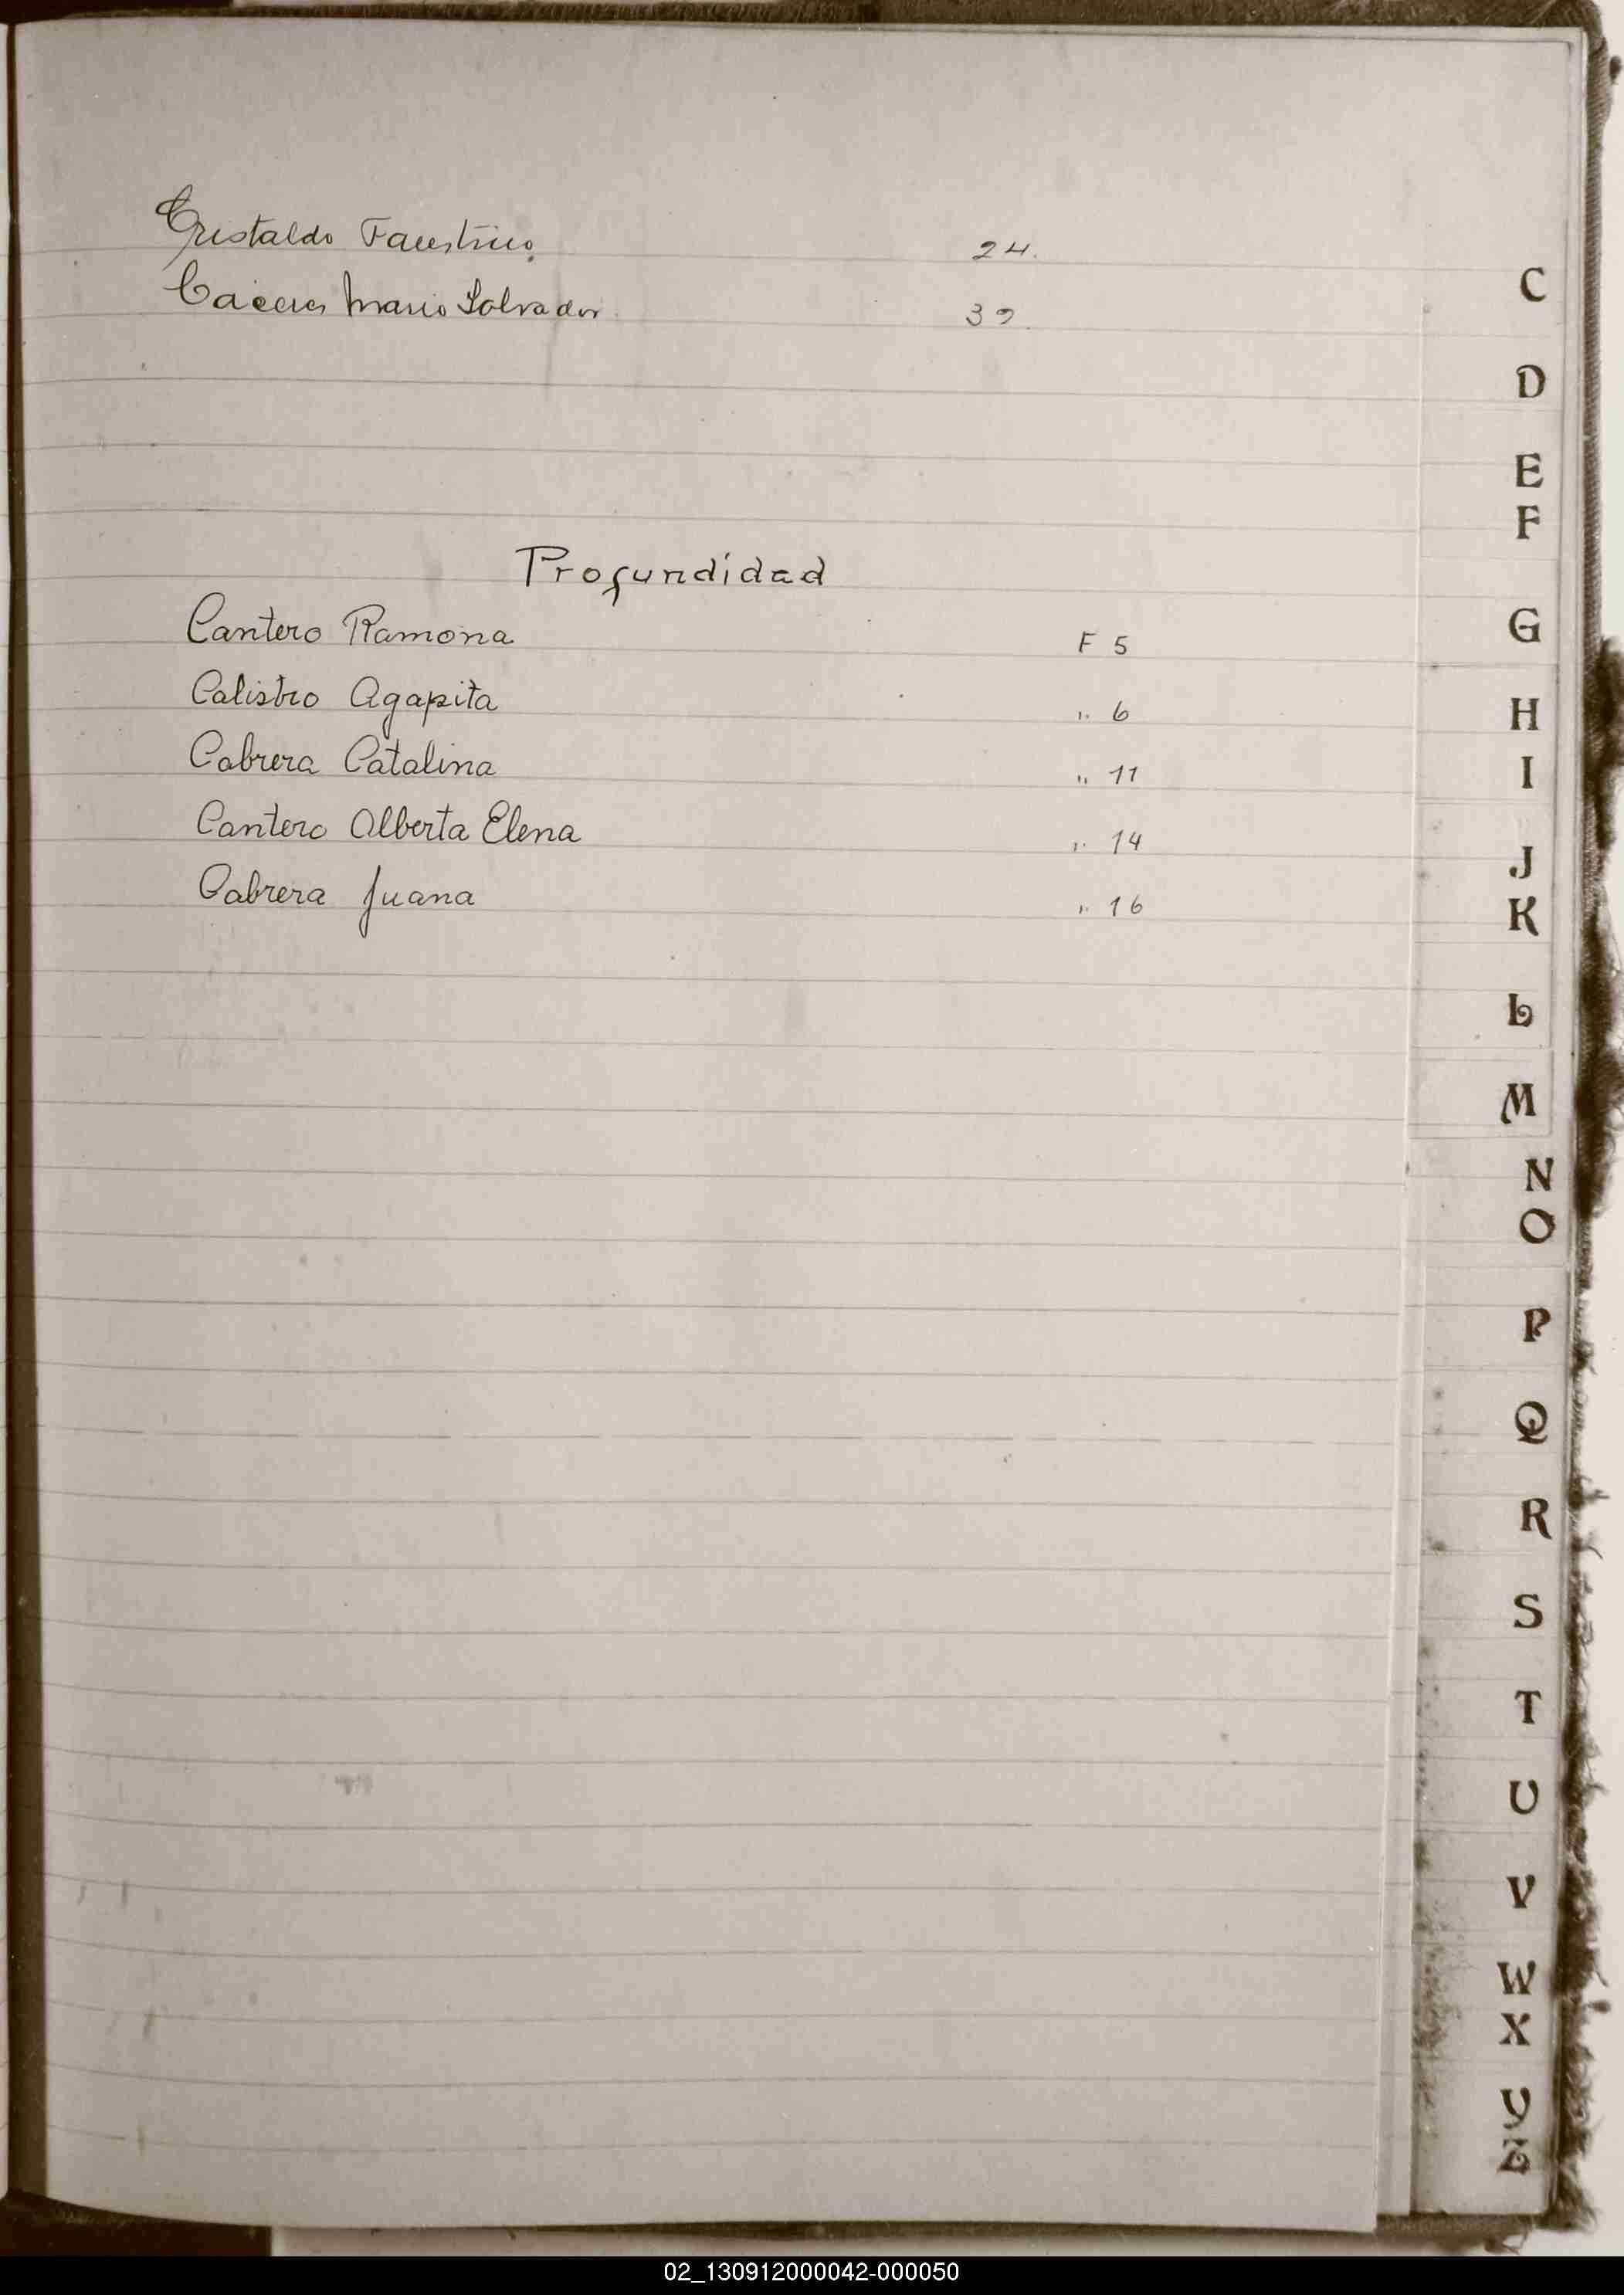 Cristaldo Faustino. 24.
Caceres Mario Salvador. 39.
Profundidad
Cantero Ramona F 5
Calistro Agapita " 6
Cabrera Catalina " 11
Cantero Alberta Elena " 14
Cabrera Juana " 16
C
D
E
F
G
H
I
J
K
L
M
N
O
P
Q
R
S
T
U
V
W
X
Y
Z
02_130912000042-000050